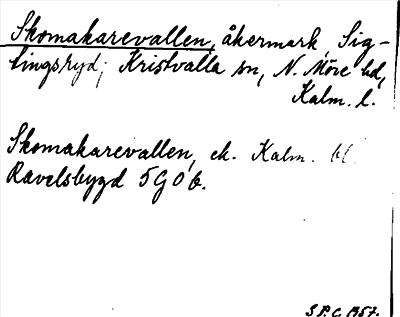 Skomakarevallen, åkermark, Sig-
lingsryd; Kristvalla sn, N. Möre hd,
Kalm. l.
Skomakarevallen, ek. Kalm. bl.
Ravelsbygd 5G0b.
S.P.C. 1957.